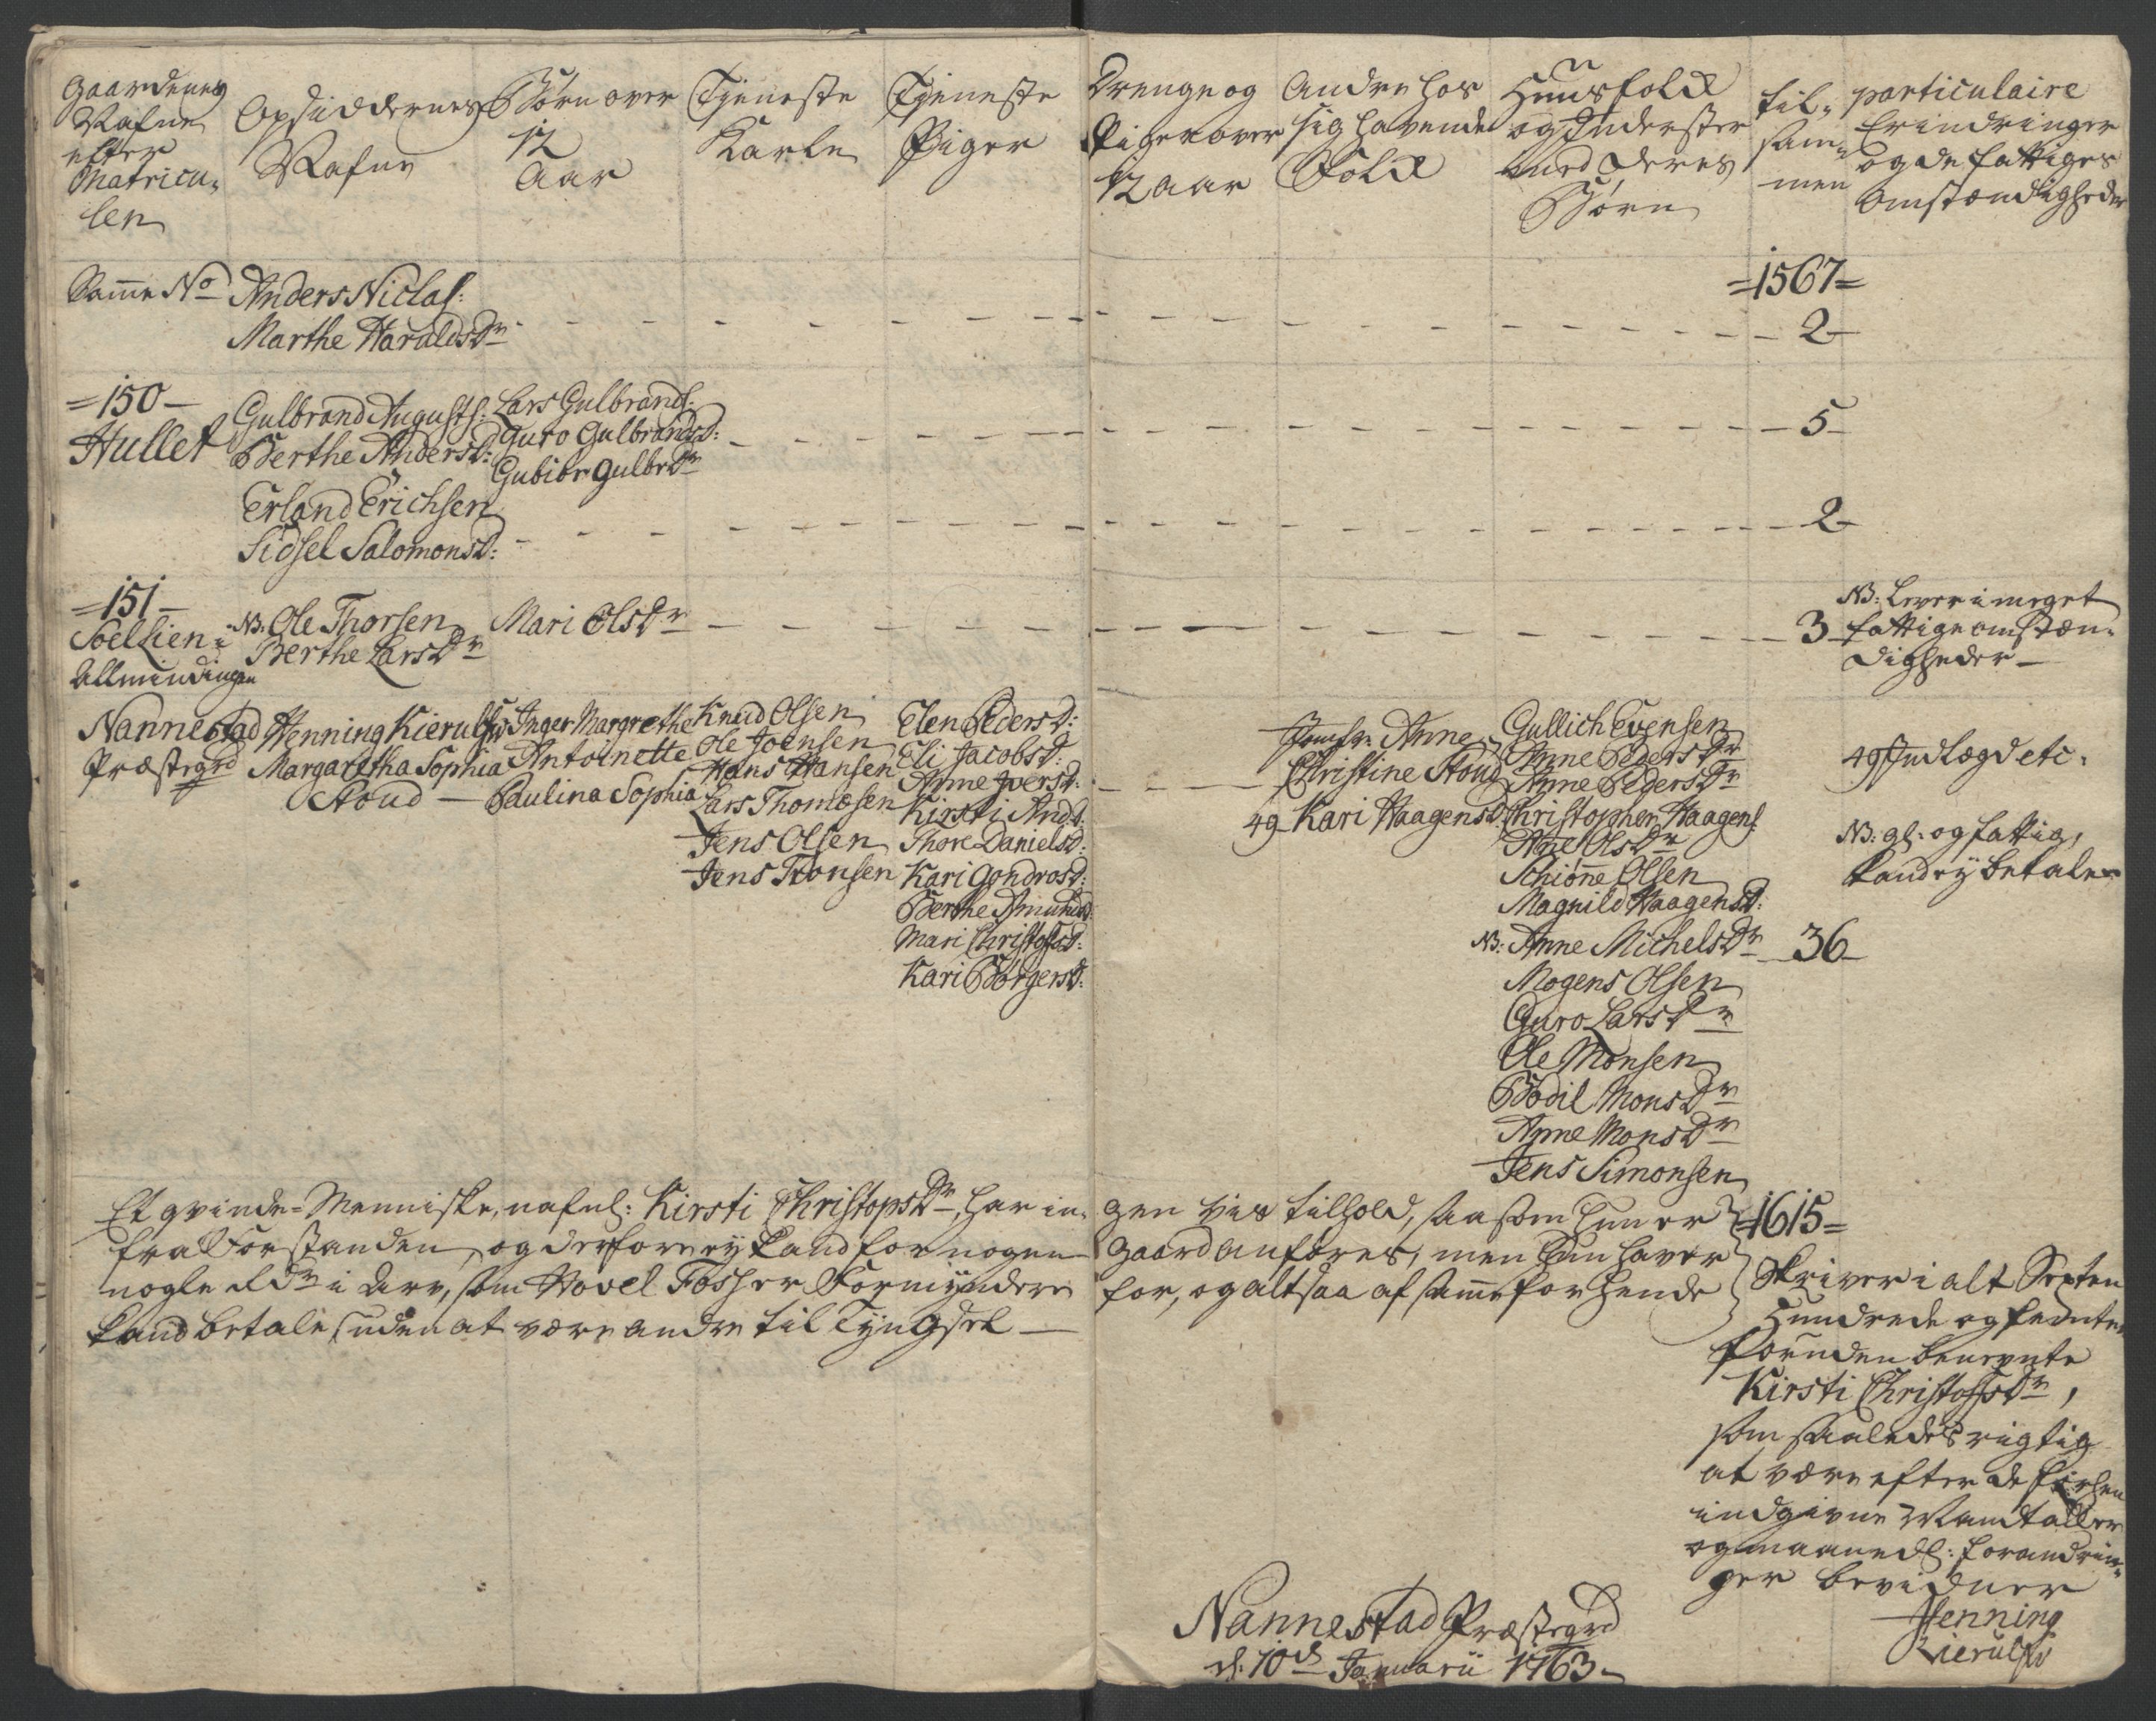 Gaardenes
Nafne
efter
Matricu-
len
Opsiddernes
Nafne
Børn over
12
Aar
Tjeneste
Karle
Tjeneste
Piger
Drenge og
Piger over
12 Aar
Andre hos
sig havende
Folk
Huusfolk
og Inderster
med deres
Børn
til-
sam-
men
particulaire
Erindringer
og de fattiges
Omstændigheder
=1567=
Samme No
Anders Niclas:
Marthe HaraldsDr
2
=150-
Hullet
Gulbrand Augusts:
Berthe AndersD:
Lars Gulbrands:
Guro GulbrandsD:
Gubiør GulbrDr
5
Erland Erichsen
Sidsel SalomonsD:
2
=151-
Soelien i
Allmindingen
NB: Ole Thorsen
Berthe LarsDr
Mari OlsDr
3
NB: Lever i meget
fattige omstæn-
digheder
Nannestad
Præstegrd
Henning Kierulf
Margaretha Sophia
Stoud
Inger Margrethe
Antoinette
Paulina Sophia
Knud Olsen
Ole Joensen
Hans Hansen
Lars Thomæsen
Jens Olsen
Jens Tronsen
Elen PedersD:
Eli JacobsD:
Anne IversD:
Kirsti AndD:
Thore DanielsD:
Kari GondrosD:
Berthe AmundsD:
Mari ChristofsD:
Kari BørgersD:
Jomfr: Anne
Christine Stoud
49 Kari HaagensD:
Gullich Evensen
Anne PedersDr
Anne PedersDr
Christopher Haagens:
Anne OlsDr
Schiønne Olsen
Magnild HaagensD:
NB: Anne MichelsDr
Mogens Olsen
Guro LarsDr
Ole Monsen
Bodil MonsDr
Anne MonsDr
Jens Simonsen
36
49 Indlagd etc:
NB: gl: og fattig,
kand ey betale
Et qvinde-Menniske, nafnl: Kirsti ChristopsDr, har in-
gen vis tilhold, saasom hun er
fra Forstanden, og derfore ey kand for nogen
Gaard anføres, men hun haver
nogle Rdr i Arv, som Hovel Fosser Formyndere
for, og altsaa af samme for hende
kand betale, uden at være andre til Tyngsel
=1615=
Skriver i alt Sexten
Hundrede og femten
foruden benevnte
Kirsti ChristofsDr,
som saaledes rigtig
at være efter de første
indgivne Mandtaller
og maanedl: forandrin-
ger bevidner
Henning
Kierulf
Nannestad Præstegrd
d: 10de Januarii 1763